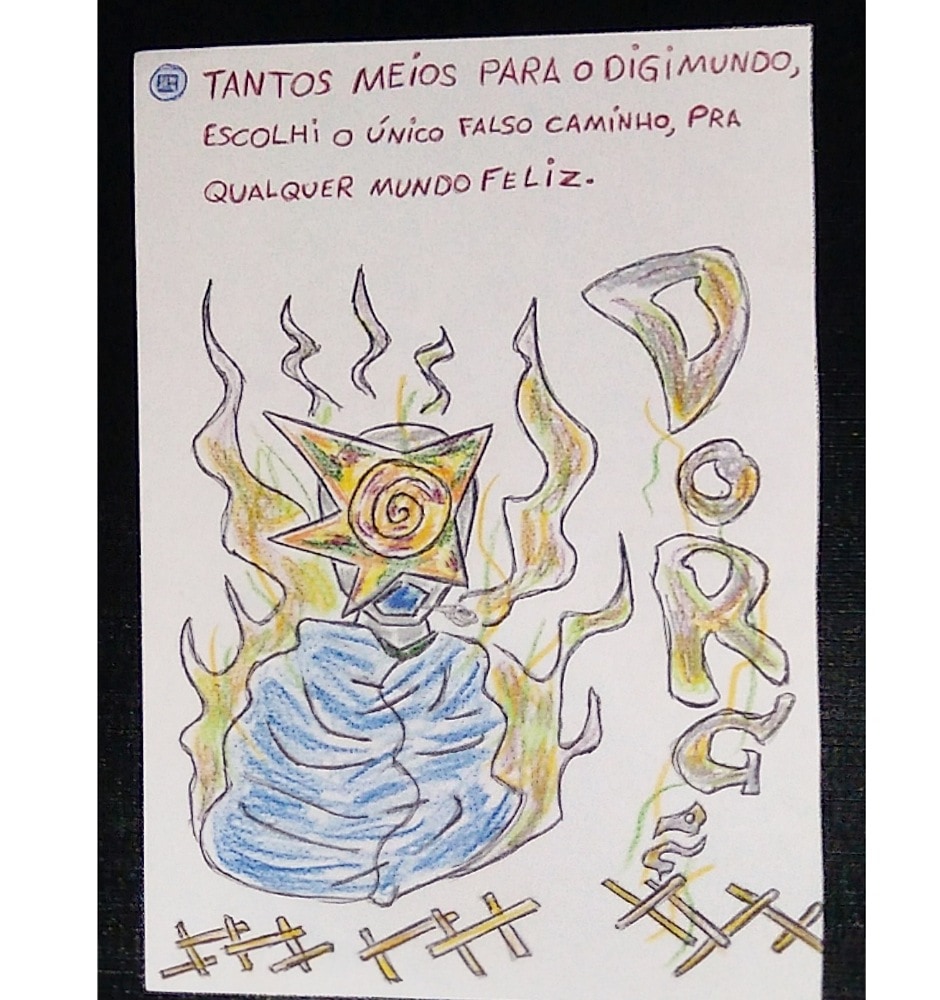 TANTOS MEiOS PARA O DiGiMUNDO,
ESCOLHi O ÚNiCO FALSO CAMiNHO, PRA
QUALQUER MUNDO FELiZ.
D
O
R
G